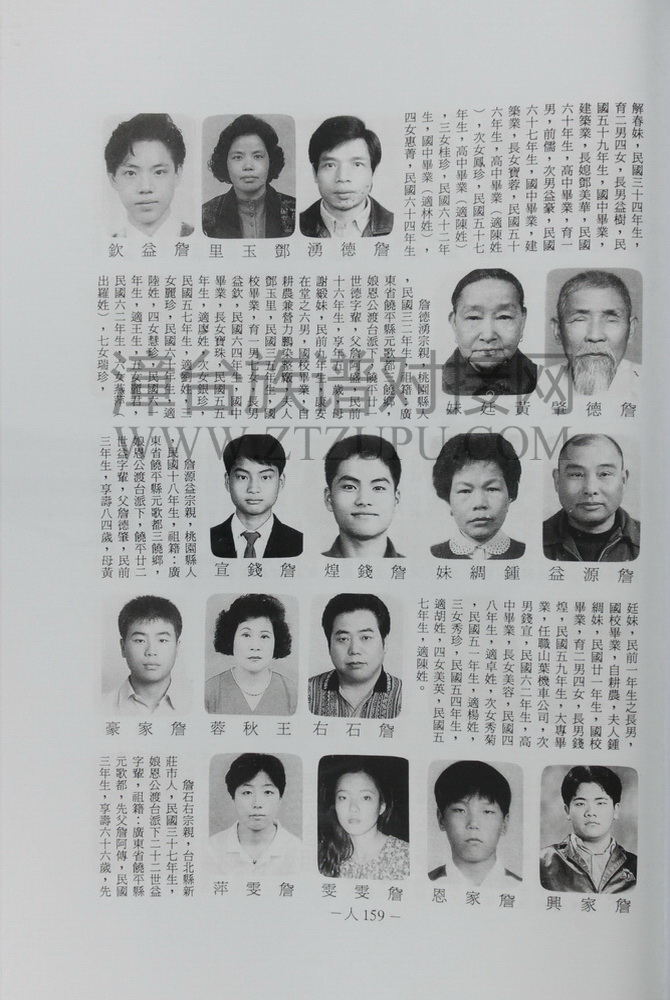 解春妹，民國三十四年生，
育二男四女，長男益樹，民
國五十九年生，國中畢業，
建築業，長媳鄧美華，民國
六十年生，高中畢業，育一
男，前儒，次男益豪，民國
六十七年生，國中畢業，建
築業，長女寶蓉，民國五十
六年生，高中畢業（適陳姓
），次女鳳珍，民國五十七
年生，高中畢業（適陳姓）
，三女桂珍，民國六十二年
生，國中畢業（適林姓），
四女惠菁，民國六十四年生
詹德湧
鄧玉里
詹益欽
詹德肇
黃廷妹
詹德湧宗親，桃園縣人
，民國三二年生，祖籍：廣
東省饒平縣元歌都三饒鄉
娘恩公渡台派下，饒平廿一
世德字輩，父詹
十六年生，享年
謝緞妹，民前年生，康安
在堂之六男，國校畢業，自
耕農兼營力鵬染整廠，夫人
鄧玉里，民國三五年生，國
校畢業，育一男七女，長男
益欽，民國六四年生，國中
畢業，長女寶珠，民國五五
年生，適廖姓，次女銀珍，
民國五七年生，適劉姓，三
女麗珍，民國六十年生，適
陸姓，四女慧珍，民國六一
年生，適王生，五女麗君，
民國六二年生，六女燕萍，
出羅姓），七女瑞珍，
詹源益
鍾綢妹
詹錢煌
詹錢宣
詹源益宗親，桃園縣人
，民國十八年生，祖籍：廣
東省饒平縣元歌都三饒鄉，
娘恩公渡台派下，饒平廿二
世益字輩，父詹德肇，民前
三年生，享壽八四歲，母黃
廷妹，民前一年生之長男，
國校畢業，自耕農，夫人鍾
綢妹，民國廿一年生，國校
畢業，育二男四女，長男錢
煌，民國五九年生，大專畢
業，任職山葉機車公司，次
男錢宣，民國六二年生，高
中畢業，長女美容，民國四
八年生，適卓姓，次女秀菊
，民國五一年生，適楊姓，
三女秀珍，民國五四年生，
適胡姓，四女美英，民國五
七年生，適陳姓。
詹石右
王秋蓉
詹家豪
詹家興
詹家恩
詹雯雯
詹雯萍
詹石右宗親，台北縣新
莊市人，民國三十七年生，
娘恩公渡台派下二十二世益
字輩，祖籍：廣東省饒平縣
元歌都，先父詹阿傳，民國
三年生，享壽六十六歲，先
－人159－
WWW.ZTZUPU.COM